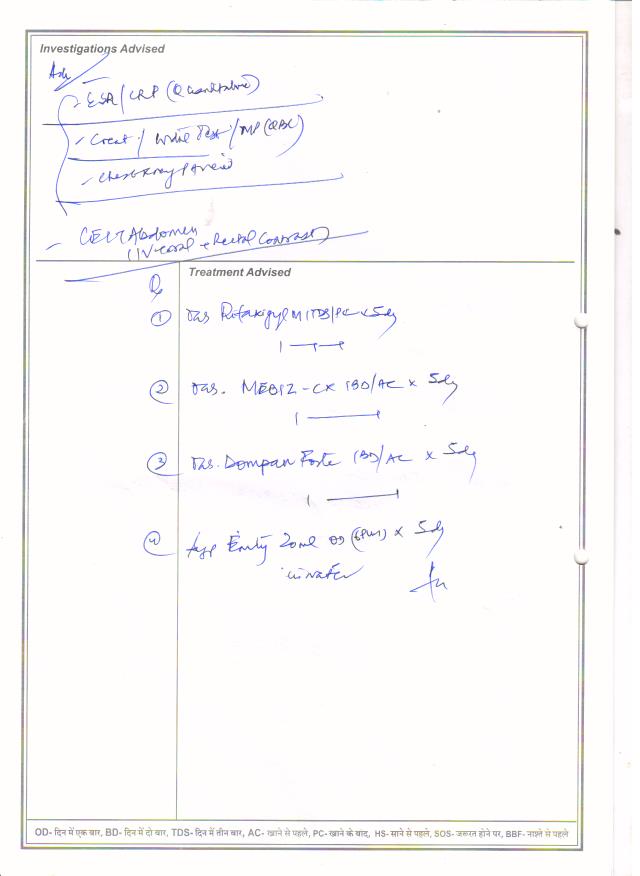 Investigations Advised
Adv
- ESR/CRP (Quantitative)
- Creat / Widal Test / MP (QBC)
- Chest Xray PA view
- CECT Abdomen
(IV+oral + Rectal Contrast)
Treatment Advised
Rx
① Tab 1 TDS/PC x 5dy
② Tab. MEBIZ-CX 1 BD/AC x 5dy
③ Tab. Dompan Forte 1 BD/AC x 5dy
④ Zone OD (6PM) x 5dy
in water
OD- दिन में एक बार, BD- दिन में दो बार, TDS- दिन में तीन बार, AC- खाने से पहले, PC- खाने के बाद, HS- सोने से पहले, SOS- जरूरत होने पर, BBF- नाश्ते से पहले